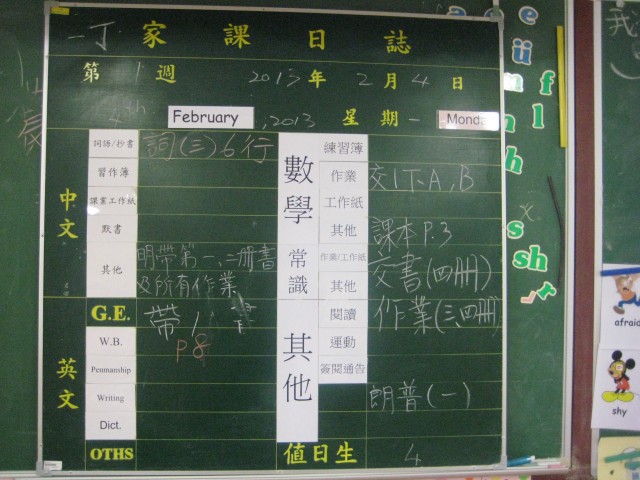 一丁 家課日誌
第 1 週 2013 年 2 月 4 日
4th February, 2013 星期一 Monda
詞語/抄書 詞(三)6行
習作簿
課業工作紙
默書
其他 明帶第一、二冊書
及所有作業
中文
G.E. 帶1
P8
W.B.
Penmanship
Writing
Dict.
OTHS
英文
數學
練習簿
作業 交1下A,B
工作紙
其他 課本P.3
常識
作業/工作紙 交書(四冊)
其他
其他
閱讀 作業(三,四冊)
運動
簽閱通告
朗普(一)
值日生 4
我
e
ü
f
l
h
s
sh
r
afraid
shy